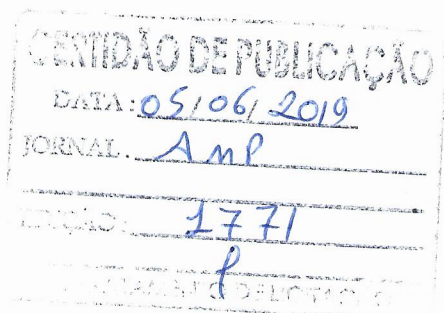 CERTIDÃO DE PUBLICAÇÃO
DATA: 05/06/2019
JORNAL: AMP
EDIÇÃO: 1771